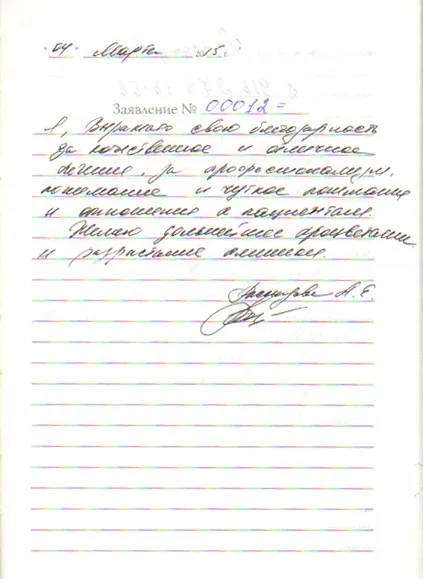 04 Марта 2015 г.
Заявление № 00012 =
Я, Выражаю свою благодарность
за качественное и отличное
лечение, за профессионализм,
понимание и чуткое понимание
и отношение к пациентам.
Желаю дальнейшее процветание
и разрастание клиники.
А. Г.